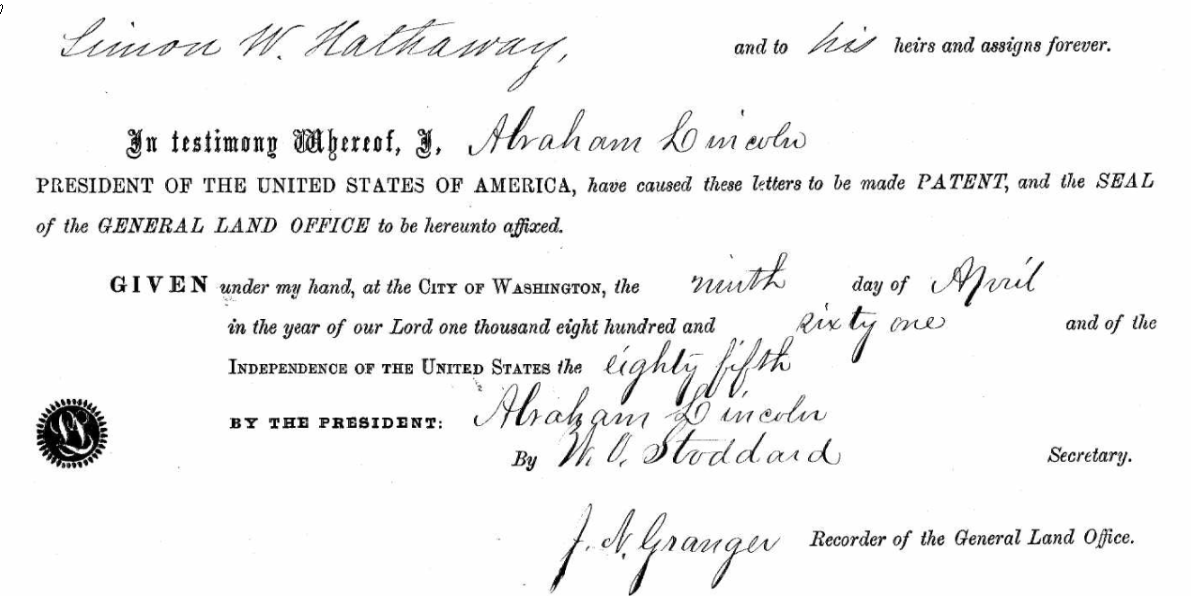 Simon W. Hathaway, and to his heirs and assigns forever.
In testimony Whereof, I, Abraham Lincoln
PRESIDENT OF THE UNITED STATES OF AMERICA, have caused these letters to be made PATENT, and the SEAL
of the GENERAL LAND OFFICE to be hereunto affixed.
GIVEN under my hand, at the CITY OF WASHINGTON, the ninth day of April
in the year of our Lord one thousand eight hundred and sixty one and of the
INDEPENDENCE OF THE UNITED STATES the eighty fifth
BY THE PRESIDENT: Abraham Lincoln
By W. O. Stoddard Secretary.
J. N. Granger Recorder of the General Land Office.